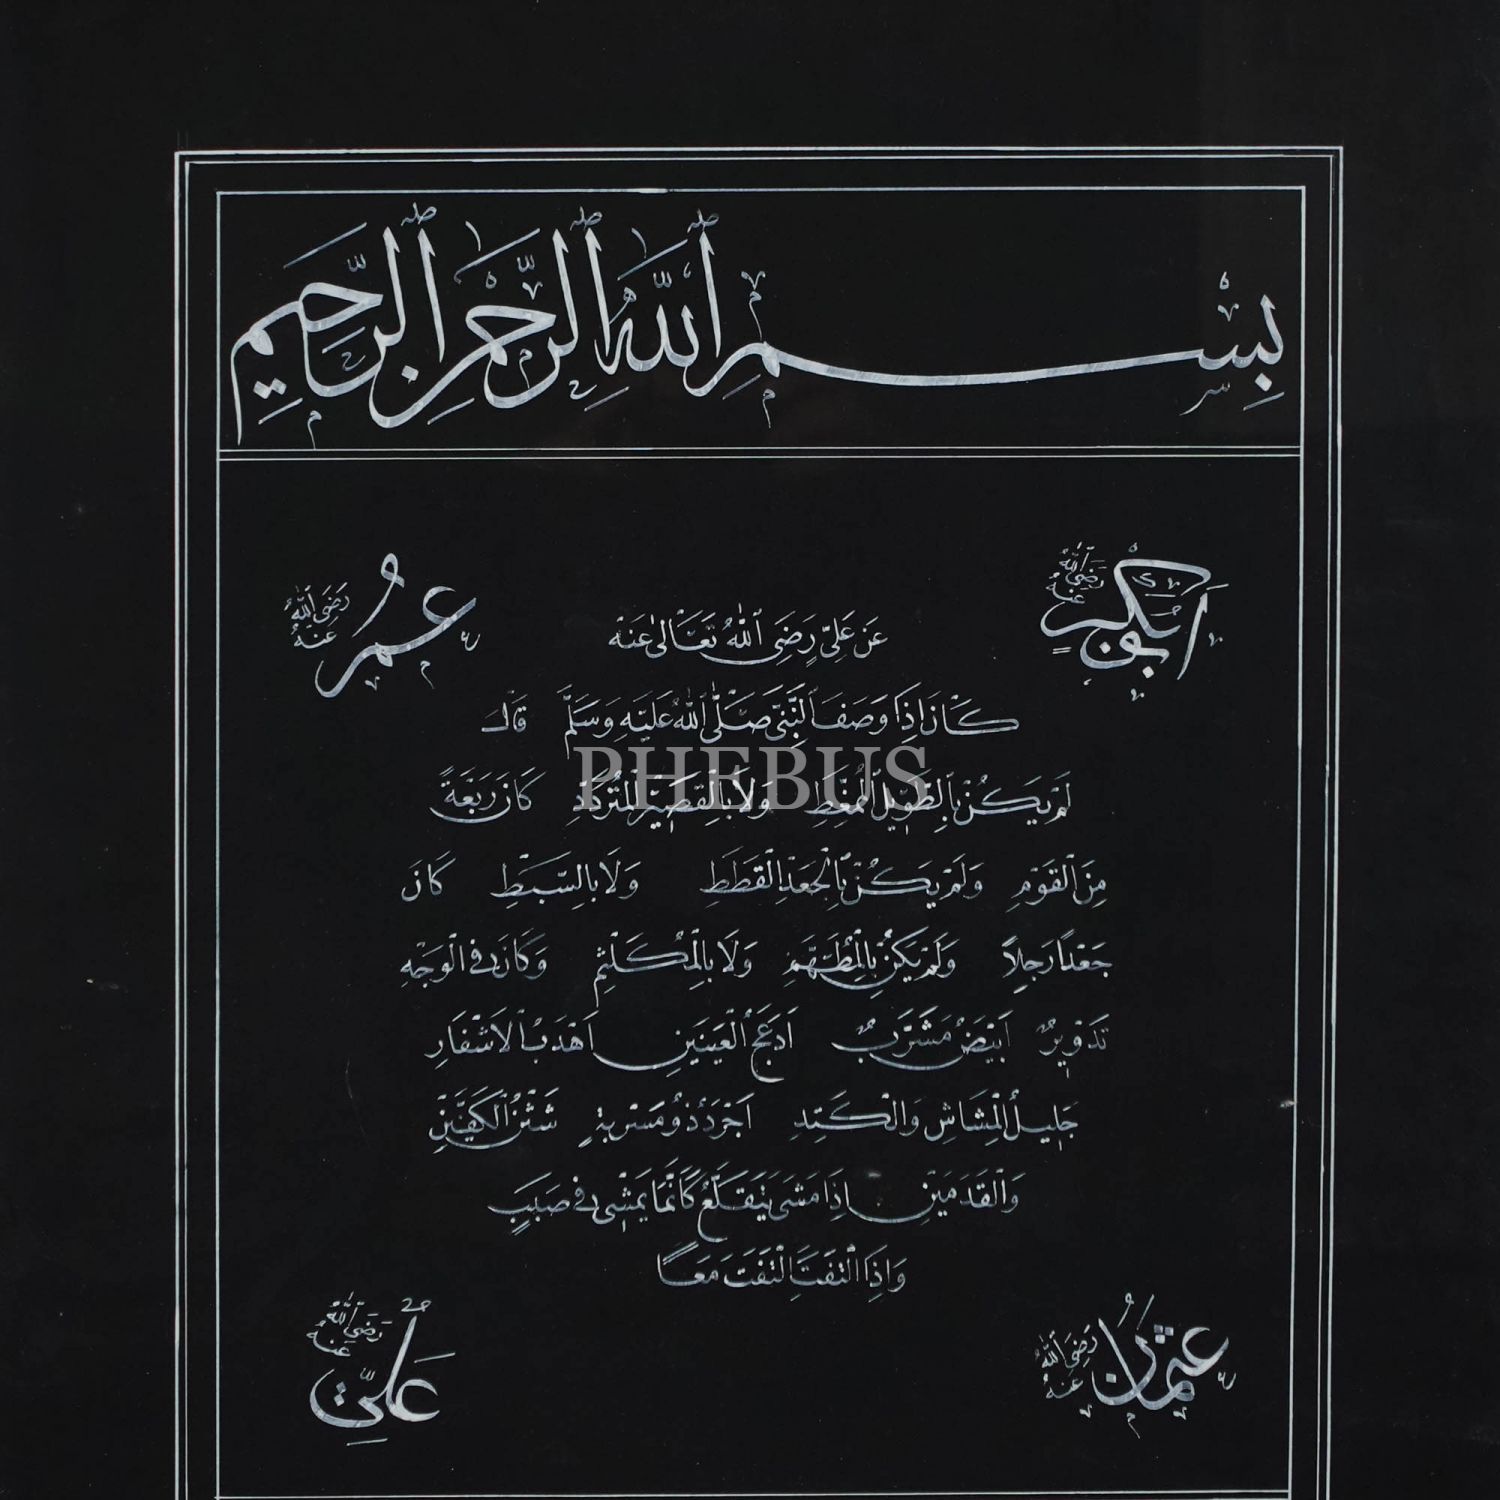 بِسْمِ ٱللَّهِ ٱلرَّحْمٰنِ ٱلرَّحِيمِ
اَبُو بَكْرٍ رَضِيَ ٱللّٰهُ عَنْهُ
عُمَرُ رَضِيَ ٱللّٰهُ عَنْهُ
عَنْ عَلِيٍّ رَضِيَ ٱللّٰهُ تَعَالٰى عَنْهُ
كَانَ اِذَا وَصَفَ ٱلنَّبِيَّ صَلَّى ٱللّٰهُ عَلَيْهِ وَسَلَّمَ قَالَ
PHEBUS
لَمْ يَكُنْ بِالطَّوِيلِ ٱلْمُمَّغِطِ وَلَا بِالْقَصِيرِ ٱلْمُتَرَدِّدِ كَانَ رَبْعَةً
مِنَ ٱلْقَوْمِ وَلَمْ يَكُنْ بِالْجَعْدِ ٱلْقَطَطِ وَلَا بِالسَّبِطِ كَانَ
جَعْدًا رَجِلًا وَلَمْ يَكُنْ بِالْمُطَهَّمِ وَلَا بِالْمُكَلْثَمِ وَكَانَ فِى ٱلْوَجْهِ
تَدْوِيرٌ اَبْيَضُ مُشَرَّبٌ اَدْعَجُ ٱلْعَيْنَيْنِ اَهْدَبُ ٱلْاَشْفَارِ
جَلِيلُ ٱلْمُشَاشِ وَالْكَتَدِ اَجْرَدُ ذُو مَسْرُبَةٍ شَثْنُ ٱلْكَفَّيْنِ
وَالْقَدَمَيْنِ اِذَا مَشَى يَتَقَلَّعُ كَاَنَّمَا يَمْشِى فِى صَبَبٍ
وَاِذَا ٱلْتَفَتَ ٱلْتَفَتَ مَعًا
عُثْمَانُ رَضِيَ ٱللّٰهُ عَنْهُ
عَلِيٌّ رَضِيَ ٱللّٰهُ عَنْهُ